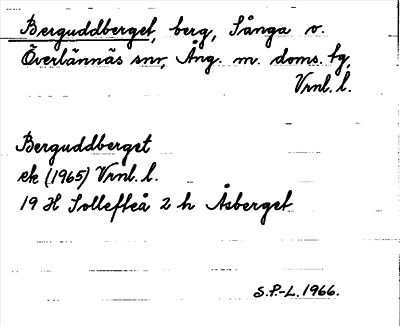 Berguddberget, berg, Sånga o.
Överlännäs snr, Ång. m. doms. tg,
Vrnl. l.
Berguddberget
ek (1965) Vrnl. l.
19 H Sollefteå 2 h Åsberget
S.P.-L. 1966.